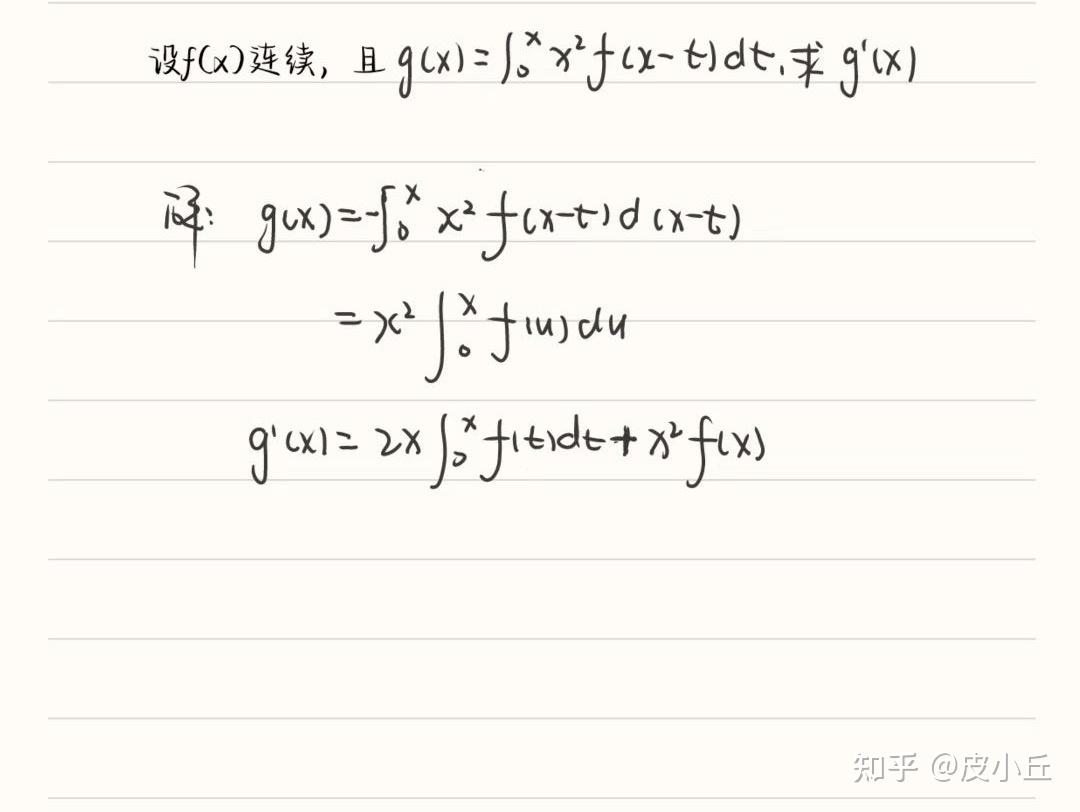 设f(x)连续，且 g(x)=∫₀ˣ x² f(x-t)dt，求 g'(x)
解： g(x)=-∫₀ˣ x² f(x-t)d(x-t)
= x² ∫₀ˣ f(u)du
g'(x)= 2x ∫₀ˣ f(t)dt + x² f(x)
知乎 @皮小丘